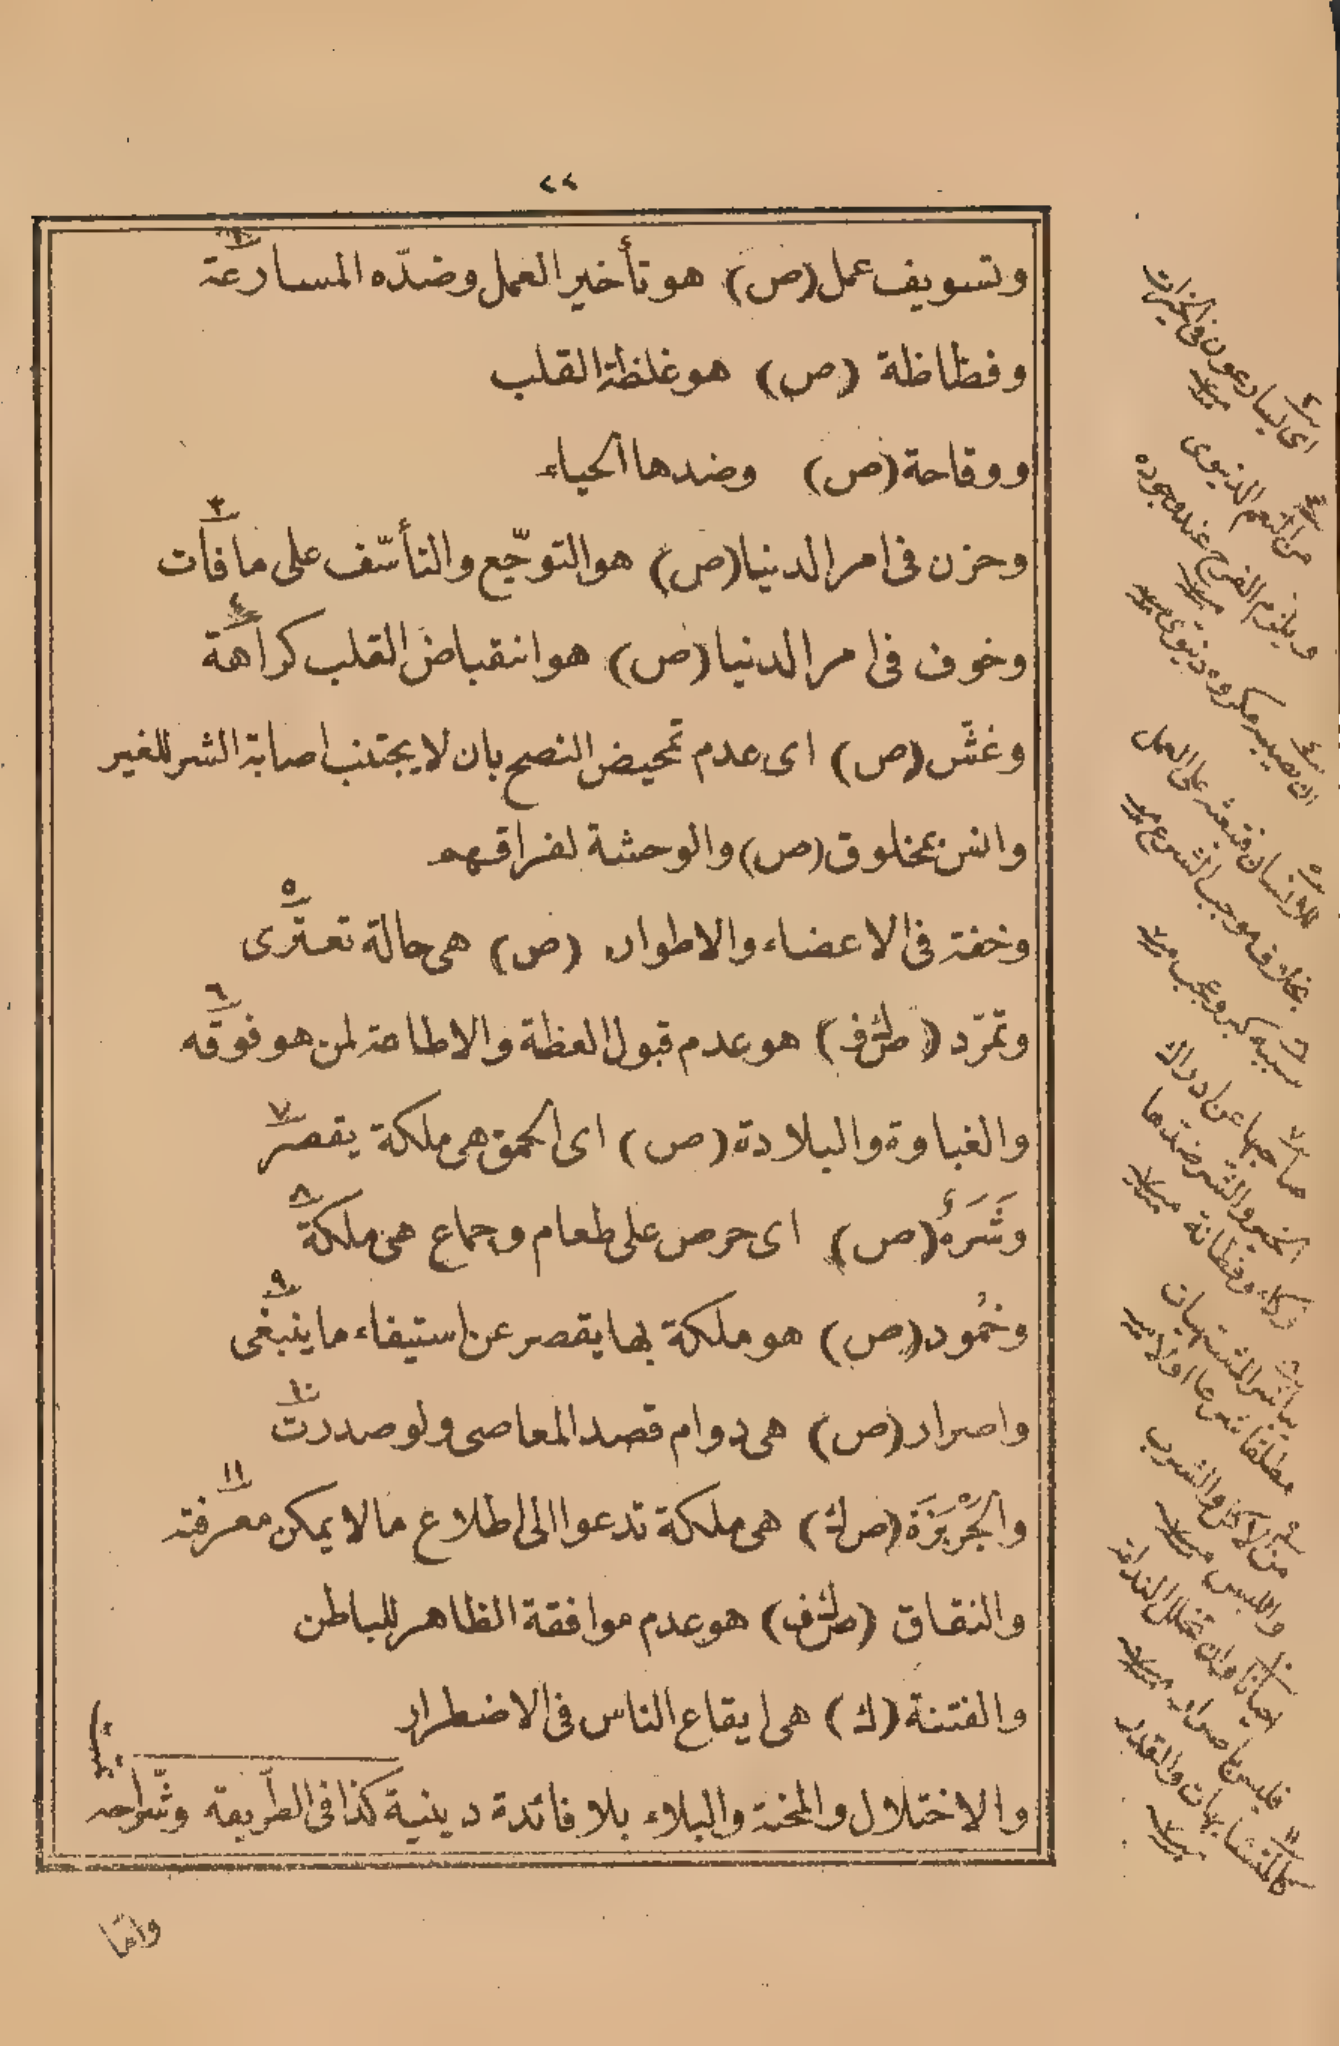 ٢٢
وتسويف عمل (ص) هو تأخير العمل وضدّه المسارعة
وفظاظة (ص) هو غلظة القلب
ووقاحة (ص) وضدها الحياء
٣
وحزن فى امر الدنيا (ص) هو التوجّع والتأسّف على ما فات
٤
وخوف فى امر الدنيا (ص) هو انقباض القلب كراهة
وغشّ (ص) اى عدم تمحيض النصح بان لا يجتنب اصابة الشر للغير
وانس بمخلوق (ص) والوحشة لفراقهم
٥
وخفة فى الاعضاء والاطوار (ص) هى حالة تعترى
٦
وتمرّد (ص ك ف) هو عدم قبول العظة والاطاعة لمن هو فوقه
٧
والغباوة والبلادة (ص) اى الحمق هى ملكة يقصر
٨
وشَرَهٌ (ص) اى حرص على طعام وجماع هى ملكة
٩
وخُمود (ص) هو ملكة بها يقصر عن استيفاء ما ينبغى
١٠
واصرار (ص) هى دوام قصد المعاصى ولو صدرت
١١
والجَرْبَزَة (ص ك) هى ملكة تدعوا الى اطلاع ما لا يمكن معرفته
والنفاق (ص ك ف) هو عدم موافقة الظاهر للباطن
والفتنة (ك) هى ايقاع الناس فى الاضطرار
والاختلال والمحنة والبلاء بلا فائدة دينية كذا فى الطريقة وشراحه
وامّا
٢
اى يسارعون فى الخيرات
٣
من النعم الدنيوى
ويلزم الفرح عند وجوده
٤
ان يصيبه مكروه دنيوى
٥
للانسان فتبعثه على العمل
بخلاف موجب الشرع
٦
سببه كبر وعجب
٧
صاحبها عن ادراك
الخير والشر ضدها
ذكاء وفطانة
٨
يباشر المشتهيات
مطلقا شرعا اولا
٩
من الاكل والشرب
واللبس
١٠
احيانا وان تخلل الندامة
فليس باصرار
١١
كالمتشابهات والقدر